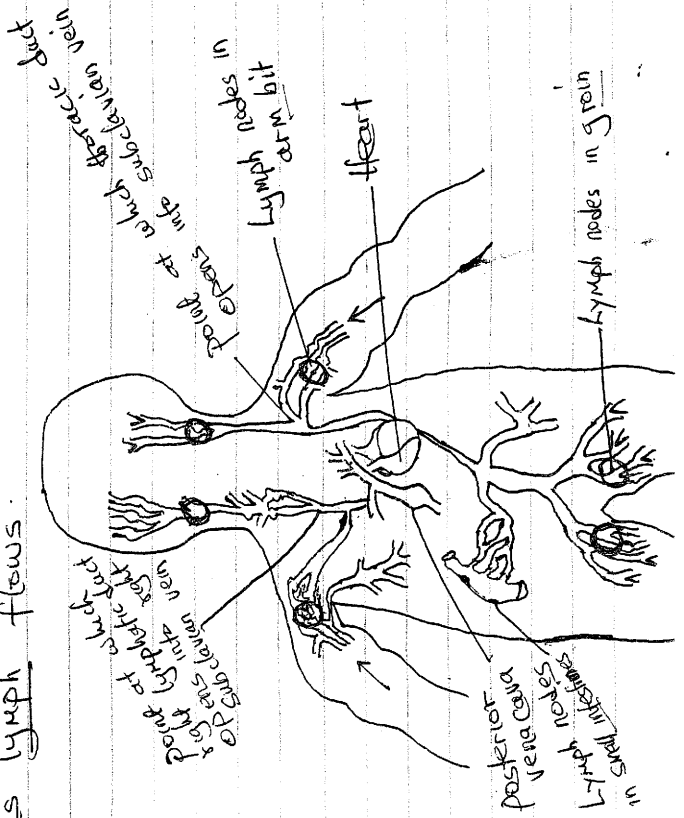 s lymph flows.
point at which thoracic duct
opens into subclavian vein
Lymph nodes in
arm bit
Heart
Lymph nodes in groin
point at which
right lymphatic duct
opens into right
subclavian vein
posterior
vena cava
Lymph nodes
in small intestines